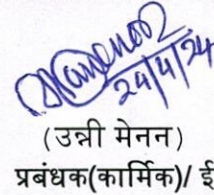 24/4/24
(उन्नी मेनन)
प्रबंधक(कार्मिक)/ ई